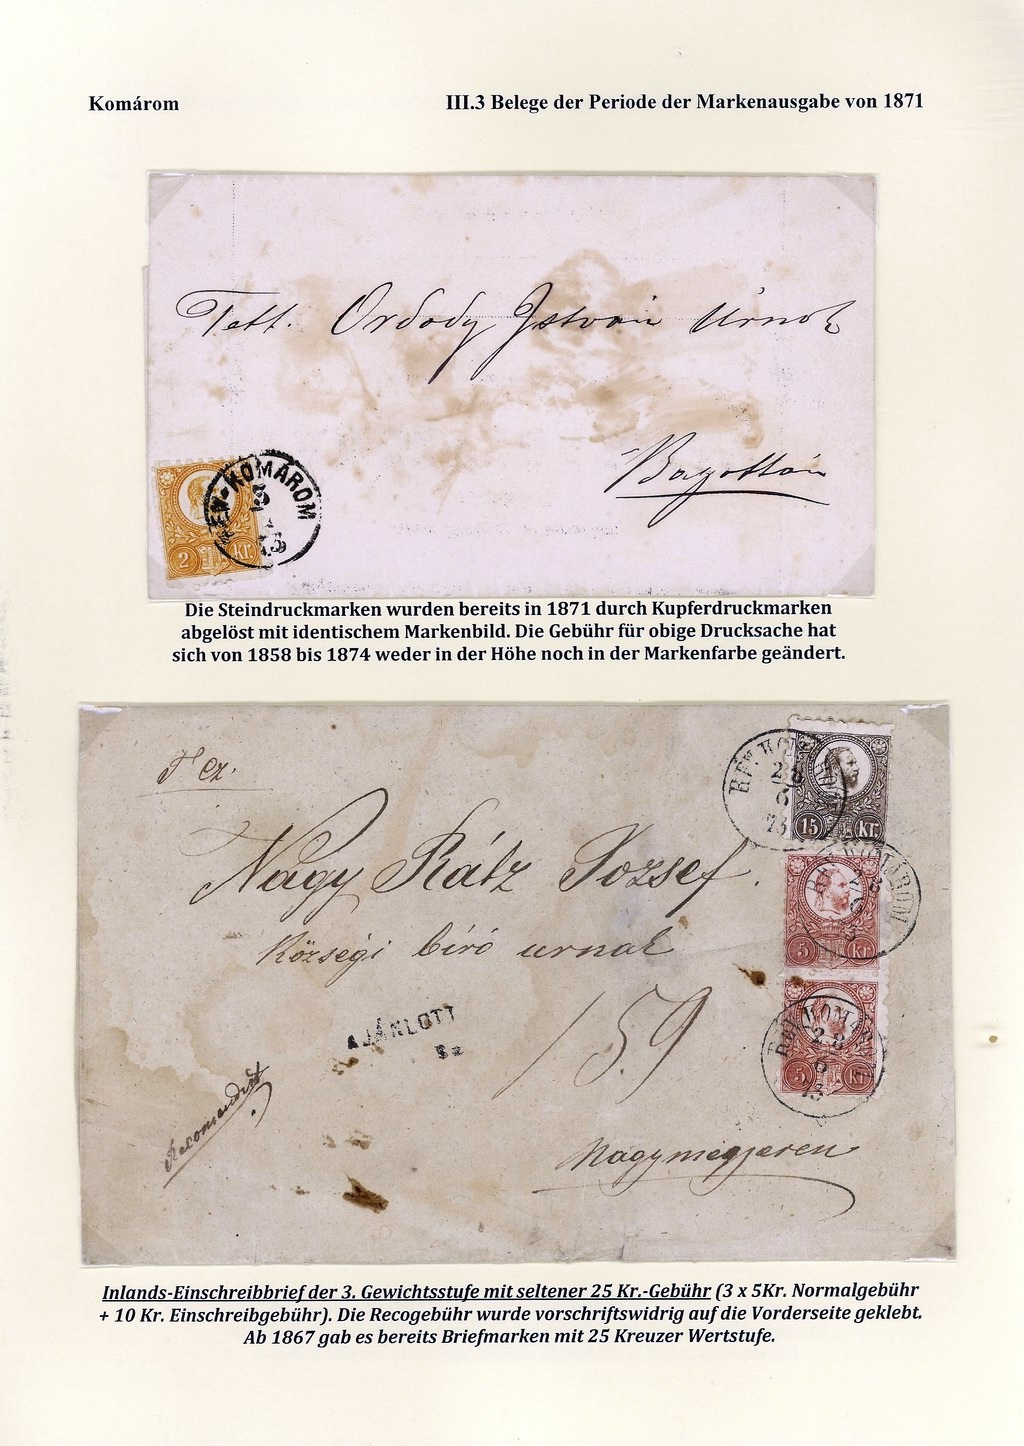 Komárom
III.3 Belege der Periode der Markenausgabe von 1871
Tett. Ordody István Úrnak
Bagottán
RÉV-KOMÁROM
2 Kr.
Die Steindruckmarken wurden bereits in 1871 durch Kupferdruckmarken
abgelöst mit identischem Markenbild. Die Gebühr für obige Drucksache hat
sich von 1858 bis 1874 weder in der Höhe noch in der Markenfarbe geändert.
15 Kr.
Nagy Rátz Jozsef.
Községi biró urnak
5 Kr.
AJÁNLOTT
Sz
159
5 Kr.
28
6
73
Recomandirt
Nagymegyeren
Inlands-Einschreibbrief der 3. Gewichtsstufe mit seltener 25 Kr.-Gebühr (3 x 5Kr. Normalgebühr
+ 10 Kr. Einschreibgebühr). Die Recogebühr wurde vorschriftswidrig auf die Vorderseite geklebt.
Ab 1867 gab es bereits Briefmarken mit 25 Kreuzer Wertstufe.